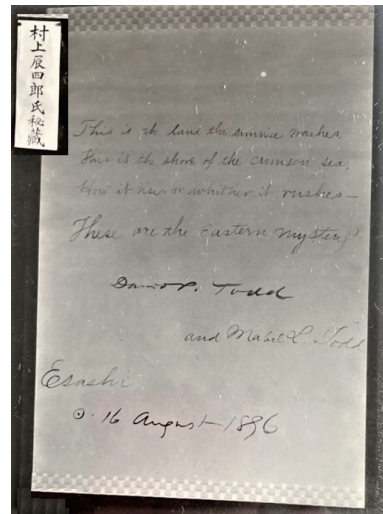 村上辰四郎氏秘藏
This is the land the sunrise washes,
This is the shore of the crimson sea,
it or whither it rushes—
These are the eastern mystery!
David P. Todd
and Mabel L. Todd
Esashi
☉. 16 August 1896